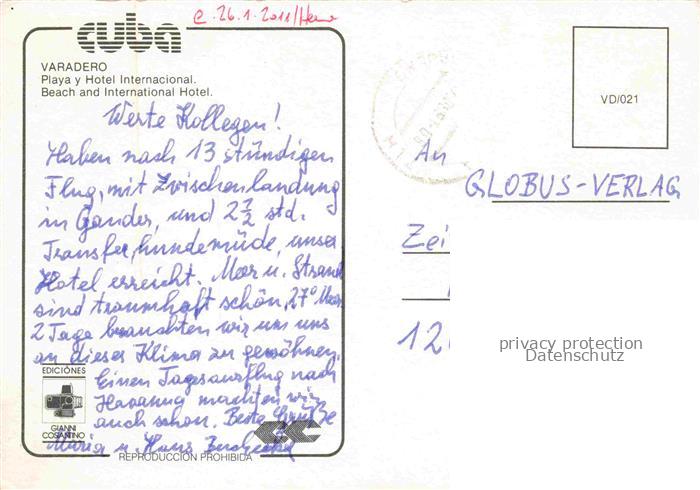 cuba
e. 26.1.2011/
VARADERO
Playa y Hotel Internacional.
Beach and International Hotel.
VD/021
Werte Kollegen!
Haben nach 13 stündigen
Flug, mit Zwischenlandung
in Gander, und 2 1/2 std.
Transfer, hundemüde, unser
Hotel erreicht. Meer u. Strand
sind traumhaft schön, 27° Meer.
2 Tage brauchten wir um uns
an dieses Klima zu gewöhnen.
Einen Tagesausflug nach
Havanna machten wir
auch schon. Beste Grüße
Maria u. Hans
An
GLOBUS-VERLAG
Zei
12
privacy protection
Datenschutz
EDICIONES
GIANNI
COSTANTINO
REPRODUCCION PROHIBIDA